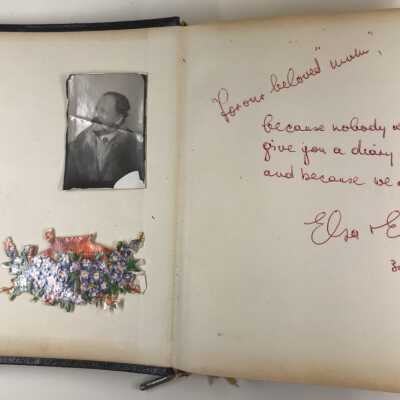 For our beloved "mum",
because nobody
give you a diary
and because we
Elsa + E